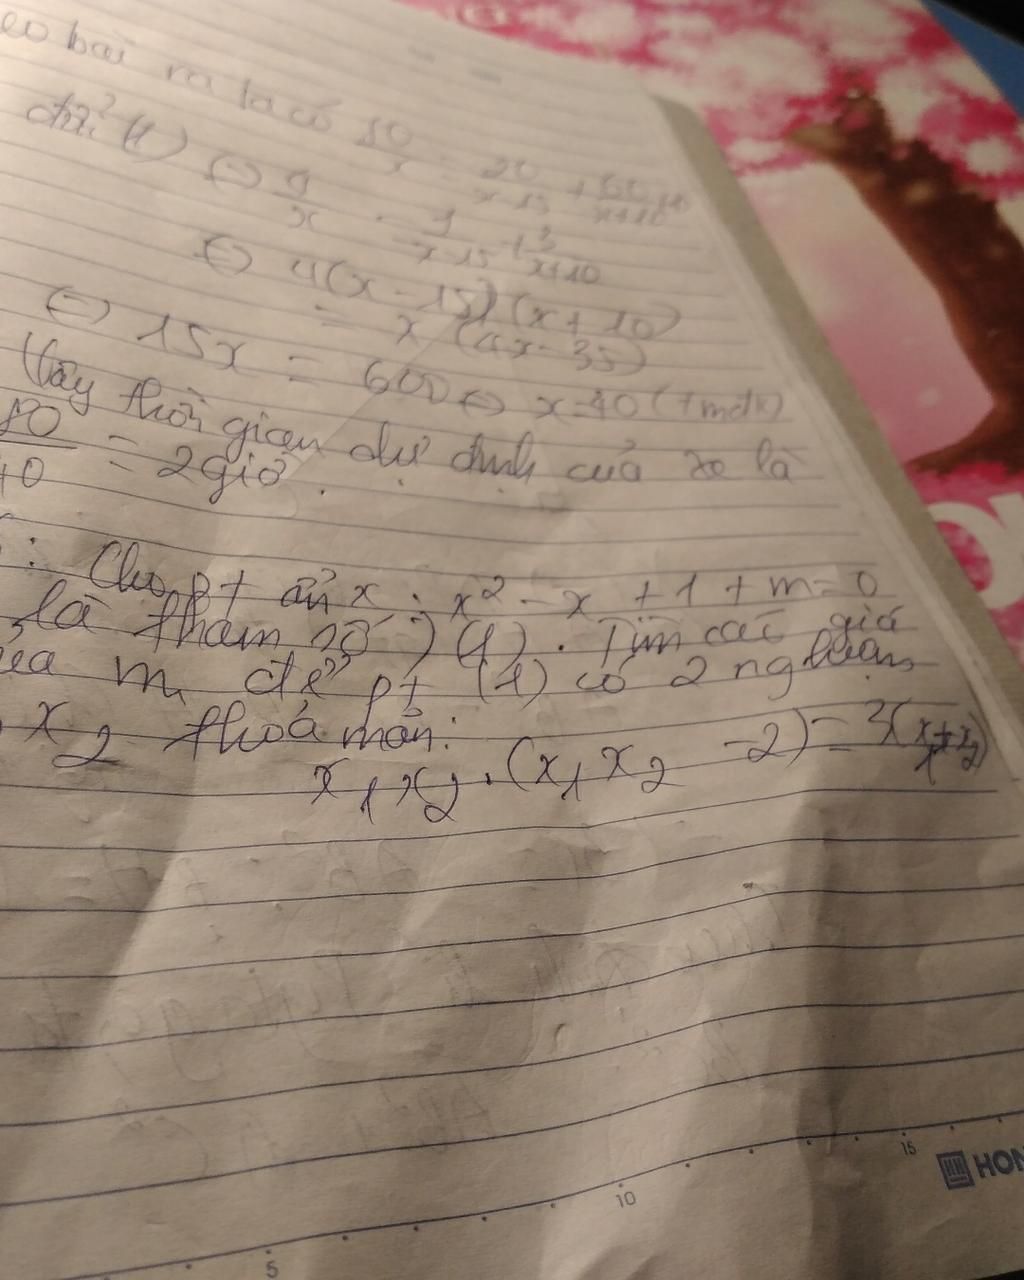 bài ra ta có 80/x = 20/x-15 + 60/x+10
(1) <=> 4/x = 1/x-15 + 3/x+10
<=> 4(x-15)(x+10)
= x(4x-35)
<=> 15x = 600 <=> x=40 (tmđk)
Vậy thời gian dự định của xe là
80/40 = 2 giờ.
: Cho pt ẩn x : x² - x + 1 + m = 0
là tham số) (1). Tìm các giá
m để pt (1) có 2 nghiệm
x₂ thoả mãn:
x₁x₂.(x₁x₂ -2) = 3(x₁+x₂)
5
10
15
HON